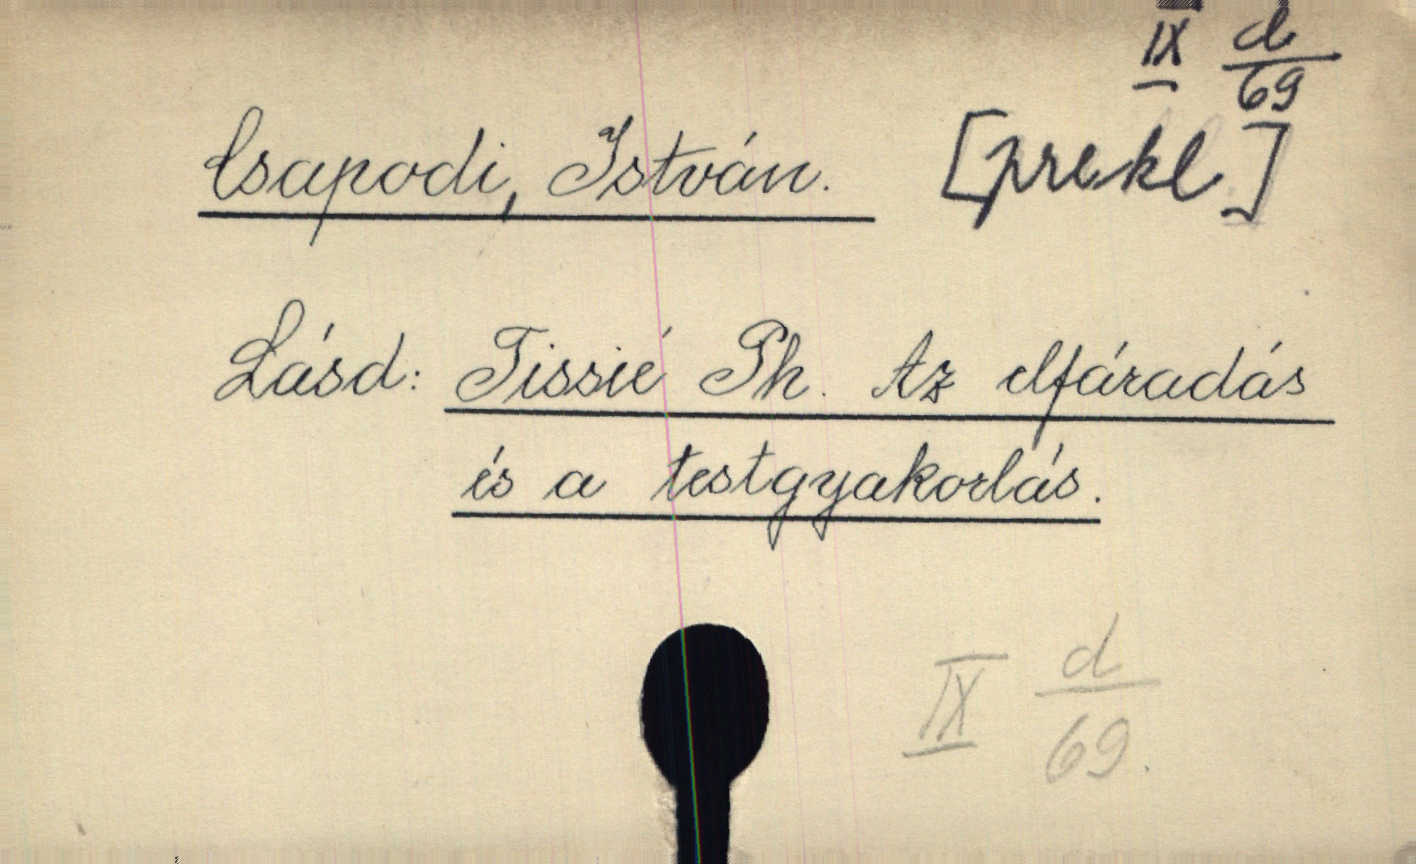 IX d/69
Csapodi, István. [prekl.]
Lásd: Tissié Ph. Az elfáradás
és a testgyakorlás.
IX d/69.